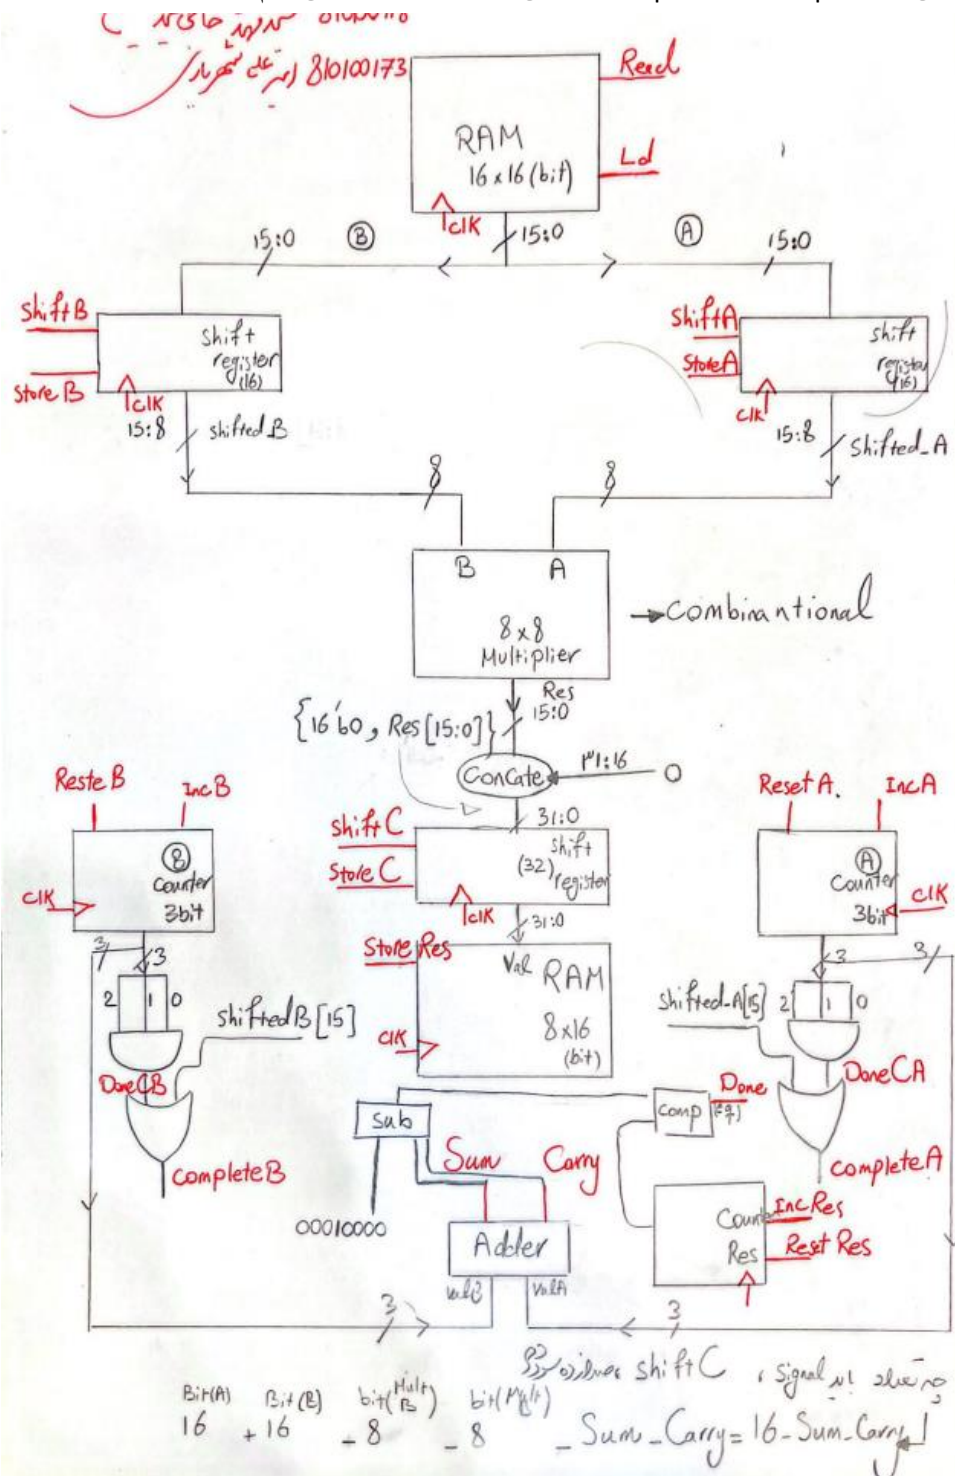 810100173
Read
RAM
16x16(bit)
Ld
clk
15:0
B
15:0
A
15:0
ShiftB
Shift
register
(16)
Store B
clk
15:8
shifted_B
ShiftA
shift
register
(16)
StoreA
clk
15:8
Shifted_A
8
8
B A
8x8
Multiplier
→Combinantional
Res
15:0
{16'b0, Res[15:0]}
Concate
31:16
0
31:0
Reste B
IncB
Counter
3bit
clk
3
3
2 1 0
shiftedB[15]
DoneCB
completeB
shiftC
Store C
shift
(32) register
clk
31:0
Store Res
Val RAM
8x16
(bit)
clk
Reset A.
IncA
A
Counter
3bit
clk
3
3
shifted_A[15]
2 1 0
DoneCA
completeA
Sub
Comp
Done
Sum
Carry
00010000
Adder
ValB
ValA
Counter
Res
IncRes
Reset Res
3
3
shiftC
signal
Bit(A)
16
+
Bit(B)
16
-
bit(Mult B)
8
-
bit(Mult)
8
- Sum_Carry = 16-Sum_Carry